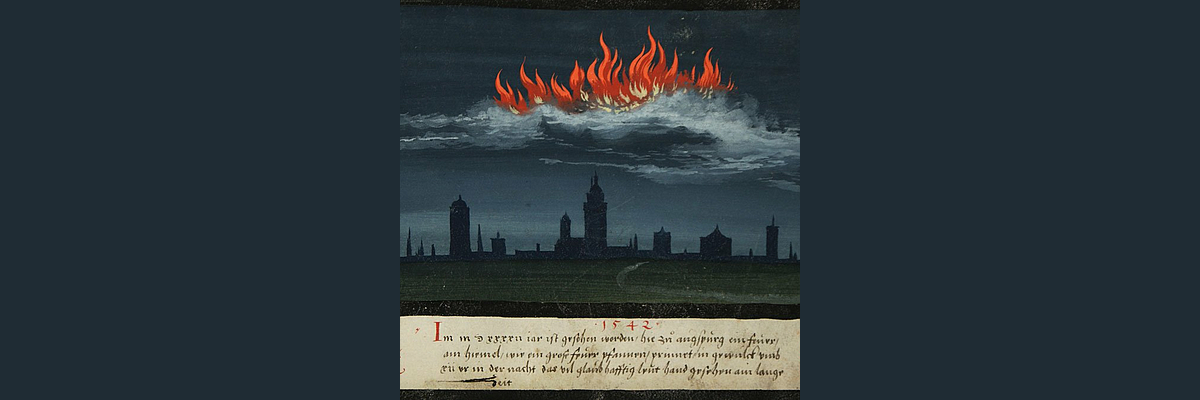 1542
Im m D xxxxii iar ist gesehen worden hie zu augspurg ein feuer
am himel / wie ein gros feuer pfannen / prinnet in gewulck umb
xii ur in der nacht das vil glaubhafftig leut hand gesehen ain lange
Zeit